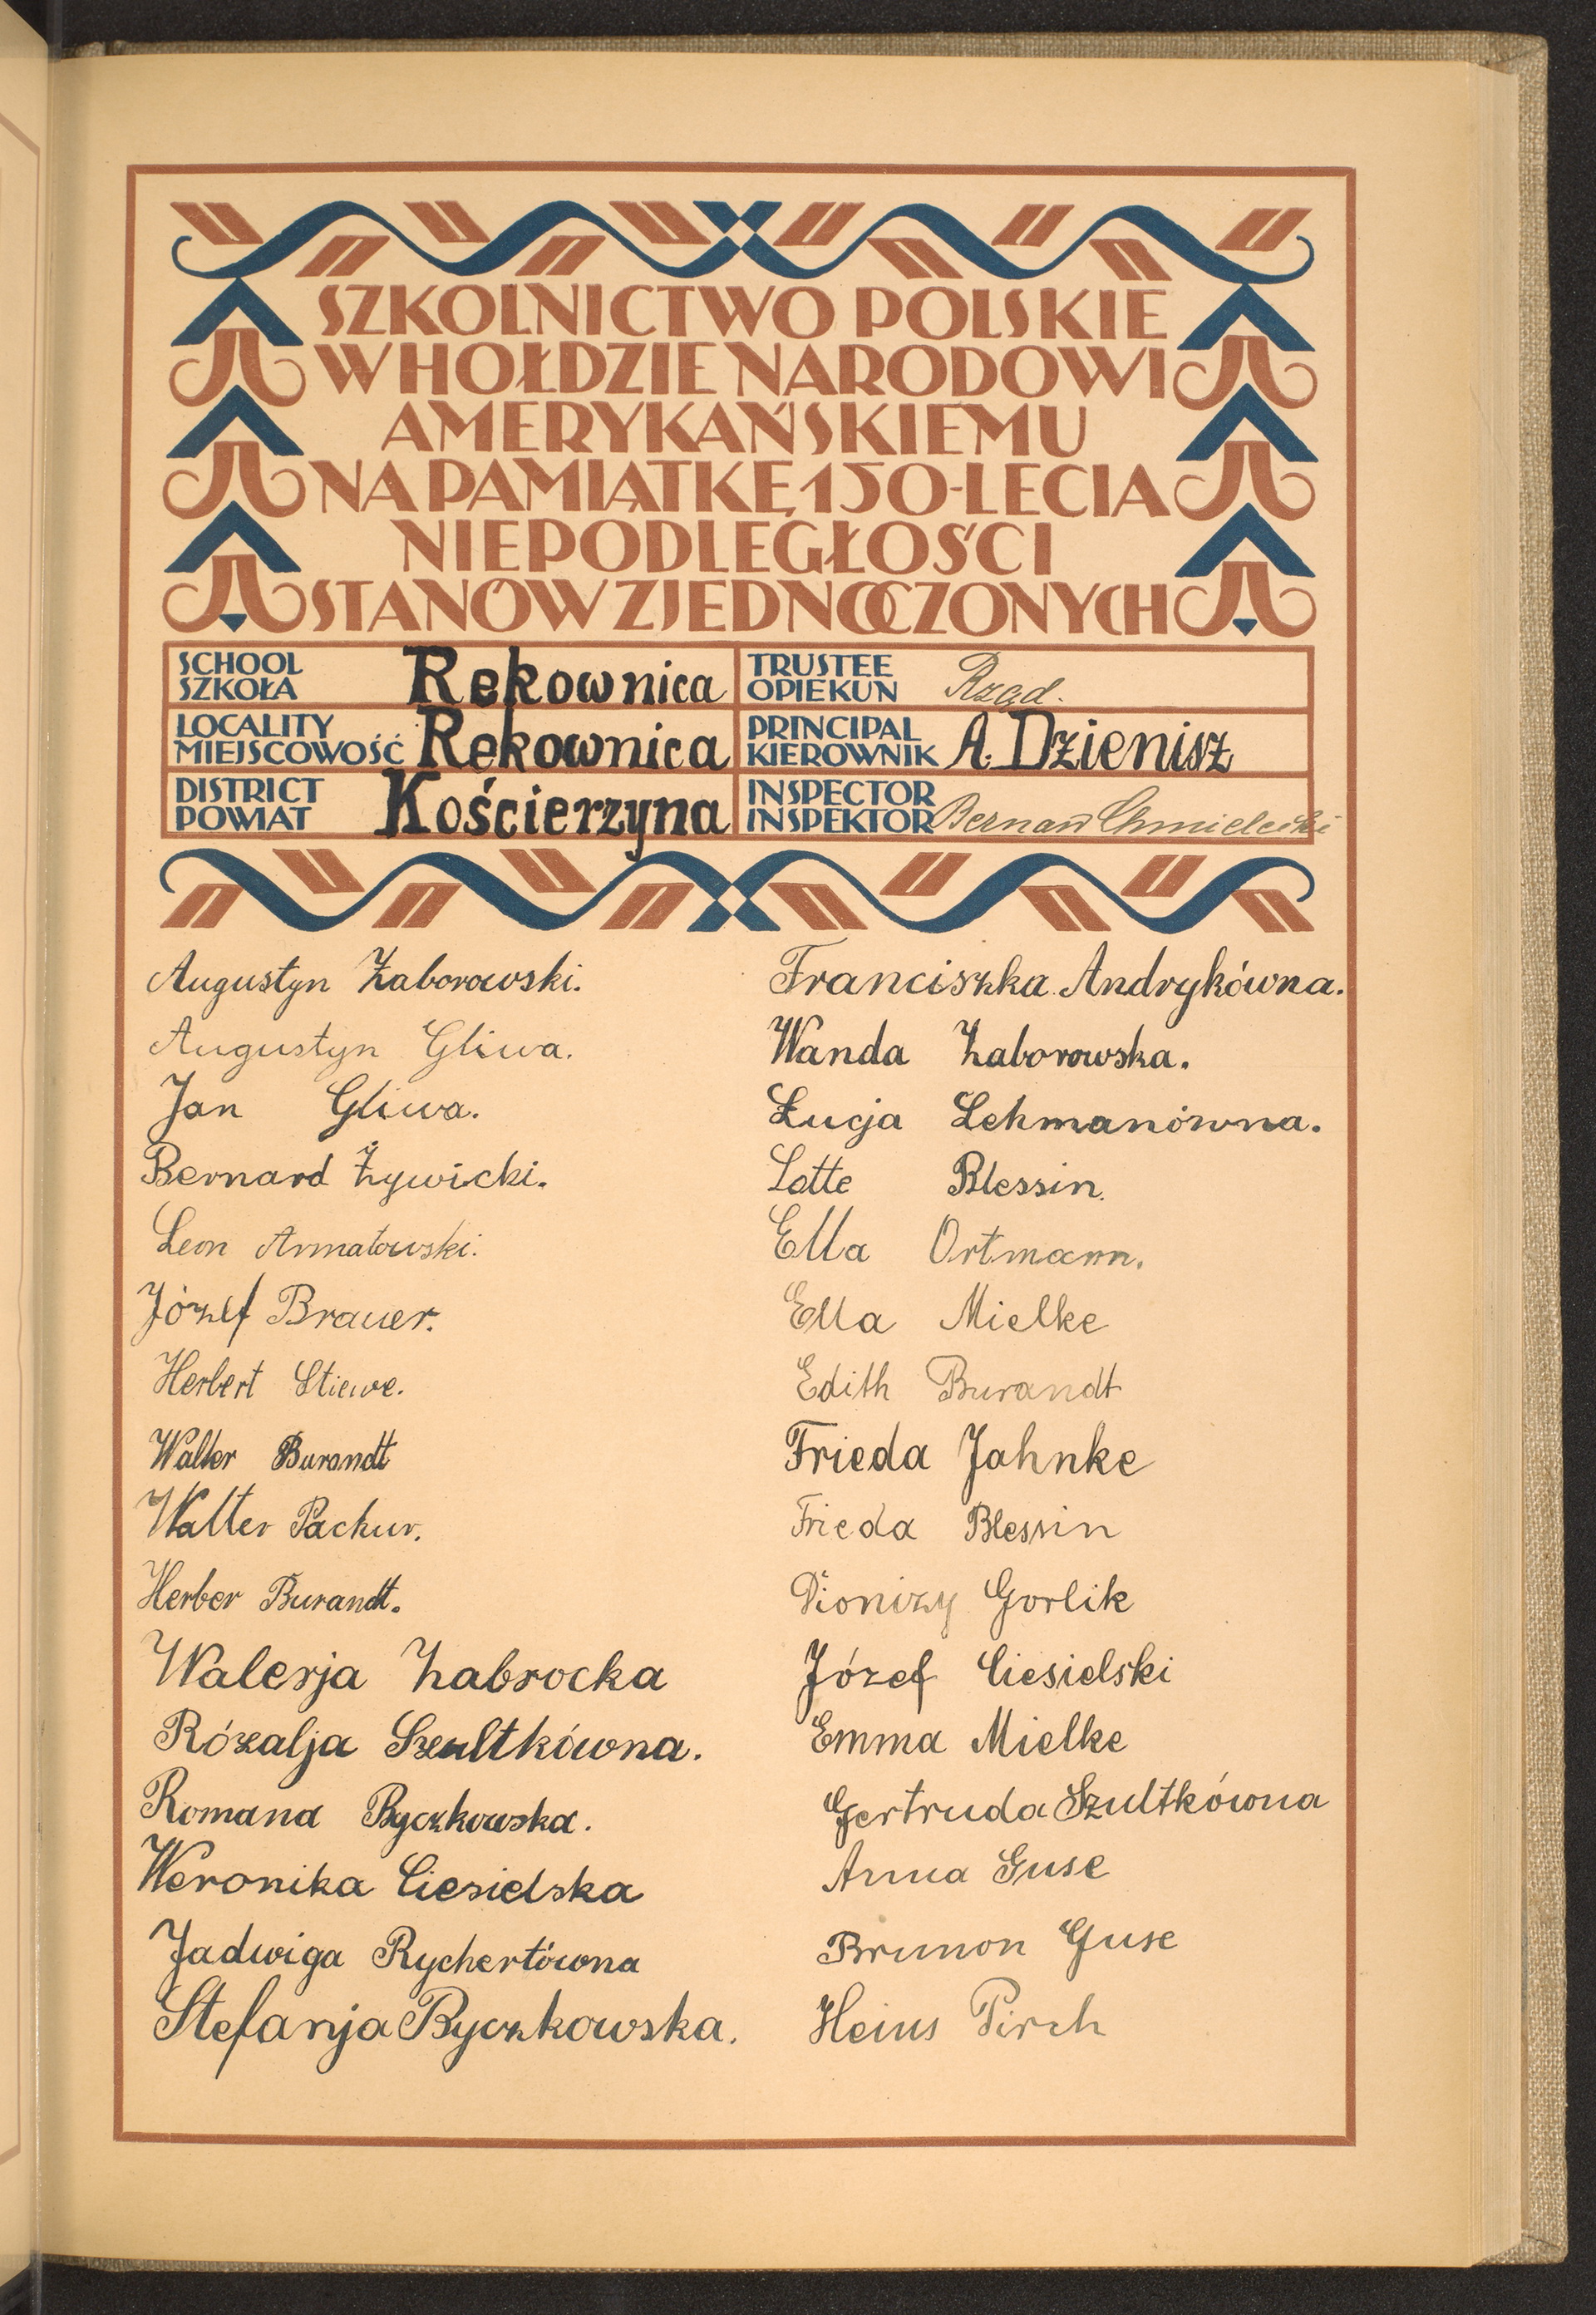 SZKOLNICTWO POLSKIE
W HOŁDZIE NARODOWI
AMERYKAŃSKIEMU
NA PAMIĄTKĘ 150-LECIA
NIEPODLEGŁOŚCI
STANÓW ZJEDNOCZONYCH
SCHOOL
SZKOŁA
Rekownica
TRUSTEE
OPIEKUN
Rząd.
LOCALITY
MIEJSCOWOŚĆ
Rekownica
PRINCIPAL
KIEROWNIK
A. Dzienisz
DISTRICT
POWIAT
Kościerzyna
INSPECTOR
INSPEKTOR
Chmielecki
Augustyn Zaborowski.
Augustyn Gliwa.
Jan Gliwa.
Bernard Żywicki.
Leon Armatowski.
Józef Brauer.
Herbert Stiewe.
Walter Burandt
Walter Pachur.
Herber Burandt.
Walerja Zabrocka
Rózalja Szultkówna.
Romana Byczkowska.
Weronika Ciesielska
Jadwiga Rychertówna
Stefanja Byczkowska.
Franciszka Andrykówna.
Wanda Zaborowska.
Łucja Lehmanówna.
Lotte Blessin.
Ella Ortmann.
Ella Mielke
Edith Burandt
Frieda Jahnke
Frieda Blessin
Dionizy Gorlik
Józef Ciesielski
Emma Mielke
Gertruda Szultkówna
Anna Guse
Brunon Guse
Heins Pirch